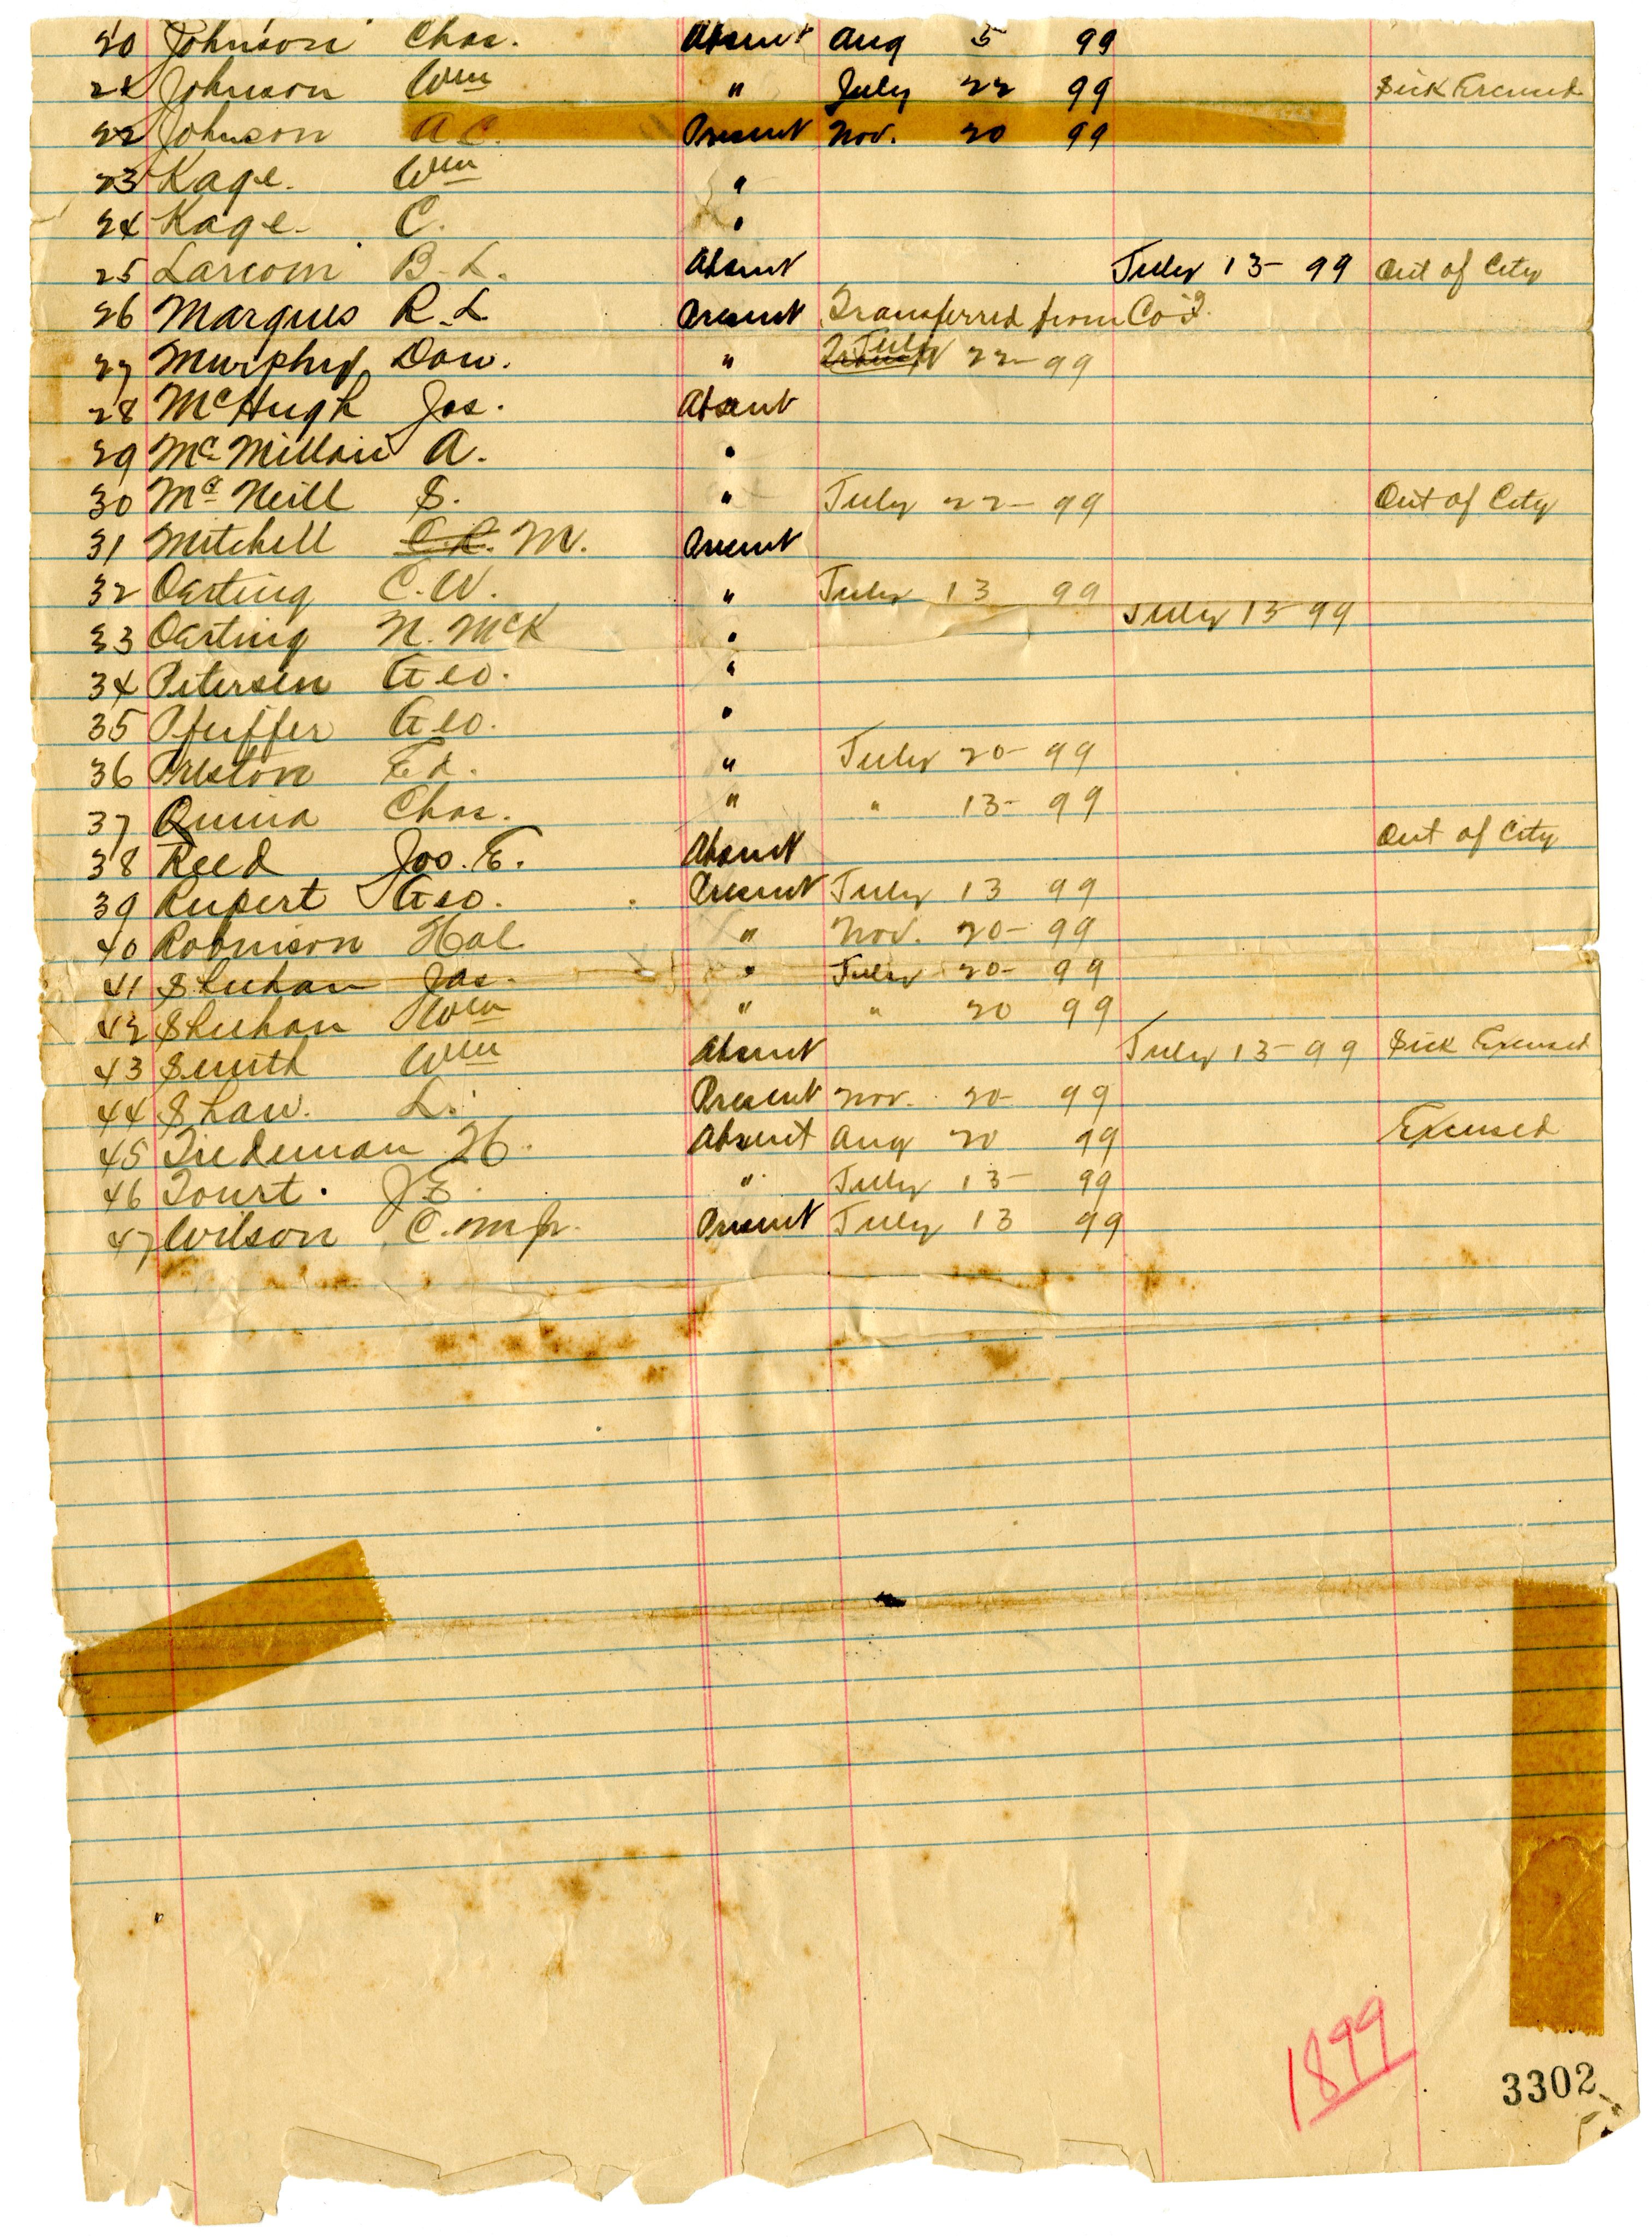 20 Johnson Chas. Absent Aug 5 99
21 Johnson Wm " July 22 99 Sick Excused
22 Johnson A C. Present Nov. 20 99
23 Kage. Wm "
24 Kage C. "
25 Larcom B. L. Absent July 13- 99 Out of City
26 Marques R. L. Present Transferred from Co
27 Murphy Dow. " July 22- 99
28 McHugh Jos. Absent
29 McMillan A. "
30 McNeill S. " July 22- 99 Out of City
31 Mitchell M. Present
32 Oerting C. W. " July 13 99
33 Oerting N. McK " July 13- 99
34 Petersen Geo. "
35 Pfeiffer Geo. "
36 Preston Ed. " July 20- 99
37 Quina Chas. " " 13- 99
38 Reed Jos. E. Absent Out of City
39 Rupert Geo. Present July 13 99
40 Robinson Hal " Nov. 20- 99
41 Sheehan Jas. " July 20- 99
42 Sheehan Wm " " 20 99
43 Smith Wm Absent July 13- 99 Sick Excused
44 Shaw. L. Present Nov. 20- 99
45 Tiedeman H. Absent Aug 20 99 Excused
46 Tourt. J E. " July 13- 99
47 Wilson C. M Jr. Present July 13 99
1899
3302